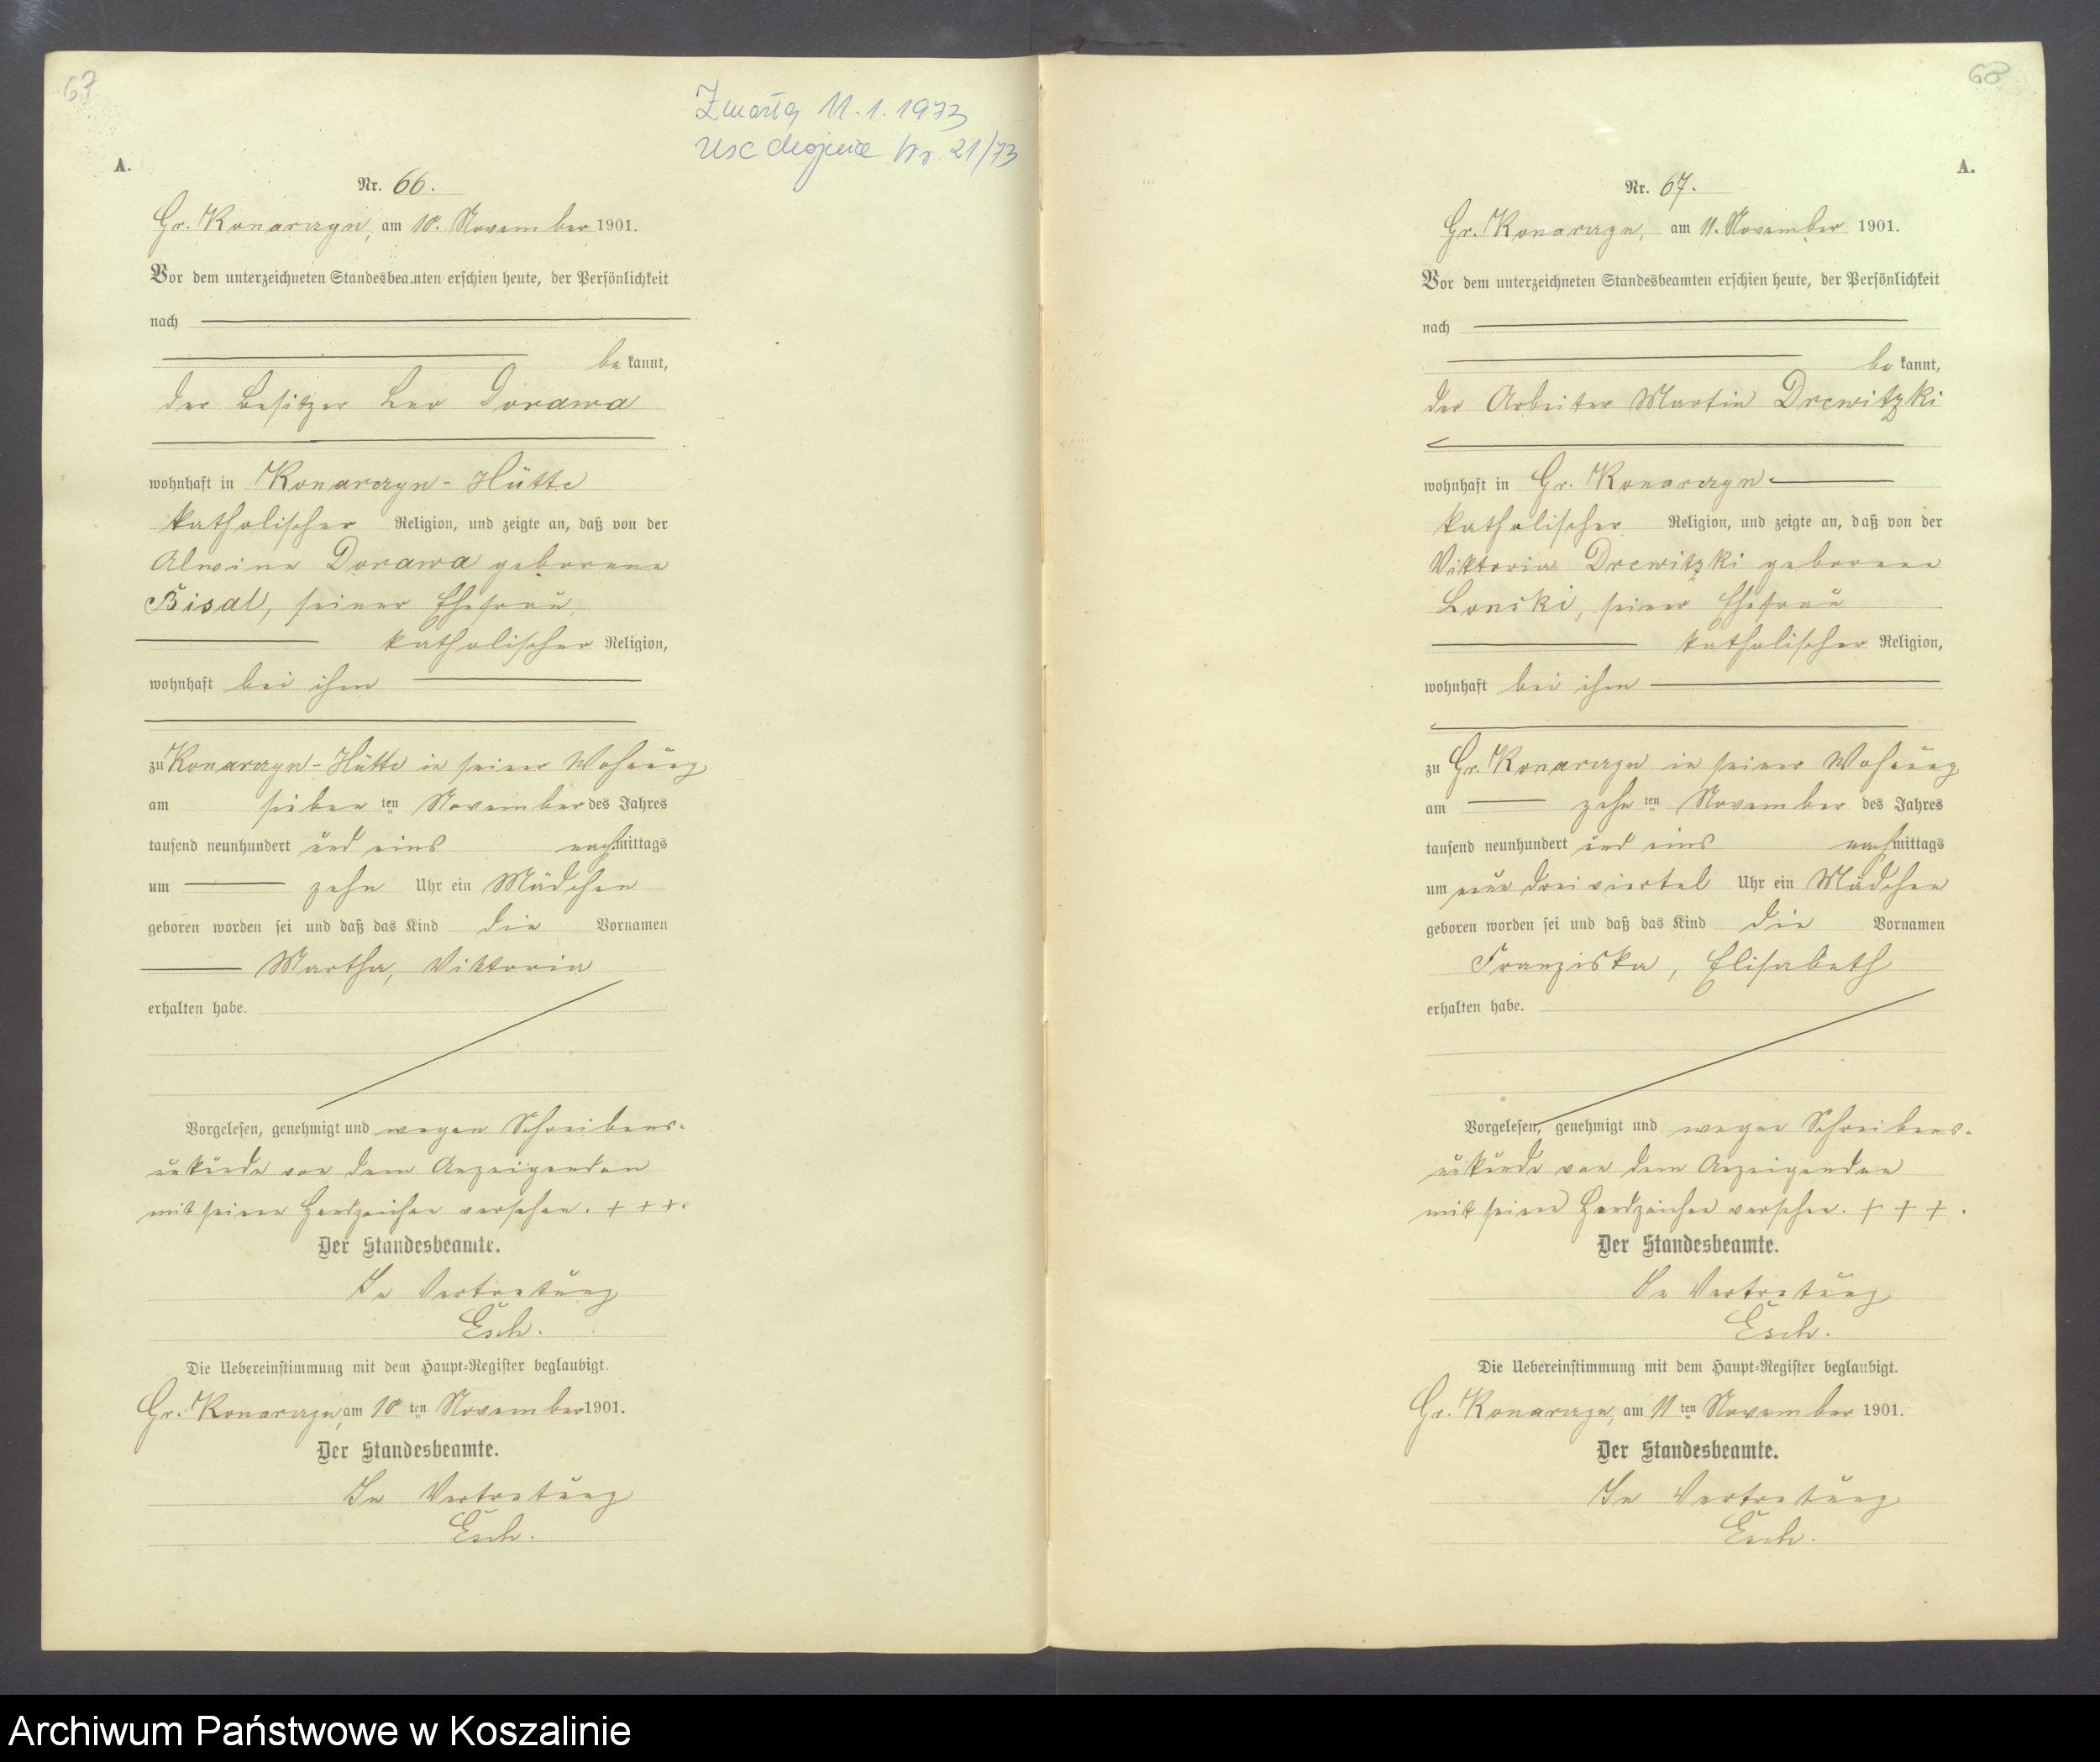 67
Zmarła 11.1.1973
USC Chojnice Nr. 21/73
A.
Nr. 66.
Gr. Konarczyn, am 10. November 1901.
Vor dem unterzeichneten Standesbeamten erschien heute, der Persönlichkeit
nach
bekannt,
der Besitzer Leo Dorawa
wohnhaft in Konarczyn-Hütte
katholischer Religion, und zeigte an, daß von der
Alwine Dorawa geborene
Bisal, seiner Ehefrau
katholischer Religion,
wohnhaft bei ihm
zu Konarczyn-Hütte in seiner Wohnung
am sieben ten November des Jahres
tausend neunhundert und eins nachmittags
um zehn Uhr ein Mädchen
geboren worden sei und daß das Kind die Vornamen
Martha, Viktoria
erhalten habe.
Vorgelesen, genehmigt und wegen Schreibens-
unkunde von dem Anzeigenden
mit seinen Handzeichen versehen. + + +.
Der Standesbeamte.
In Vertretung
Esch.
Die Uebereinstimmung mit dem Haupt-Register beglaubigt.
Gr. Konarczyn, am 10 ten November 1901.
Der Standesbeamte.
In Vertretung
Esch.
68
A.
Nr. 67.
Gr. Konarczyn, am 11. November 1901.
Vor dem unterzeichneten Standesbeamten erschien heute, der Persönlichkeit
nach
bekannt,
der Arbeiter Martin Drewitzki
wohnhaft in Gr. Konarczyn
katholischer Religion, und zeigte an, daß von der
Viktoria Drewitzki geborene
Lonski, seiner Ehefrau
katholischer Religion,
wohnhaft bei ihm
zu Gr. Konarczyn in seiner Wohnung
am zehn ten November des Jahres
tausend neunhundert und eins nachmittags
um neun dreiviertel Uhr ein Mädchen
geboren worden sei und daß das Kind die Vornamen
Franziska, Elisabeth
erhalten habe.
Vorgelesen, genehmigt und wegen Schreibens-
unkunde von dem Anzeigenden
mit seinen Handzeichen versehen. + + +.
Der Standesbeamte.
In Vertretung
Esch.
Die Uebereinstimmung mit dem Haupt-Register beglaubigt.
Gr. Konarczyn, am 11 ten November 1901.
Der Standesbeamte.
In Vertretung
Esch.
Archiwum Państwowe w Koszalinie